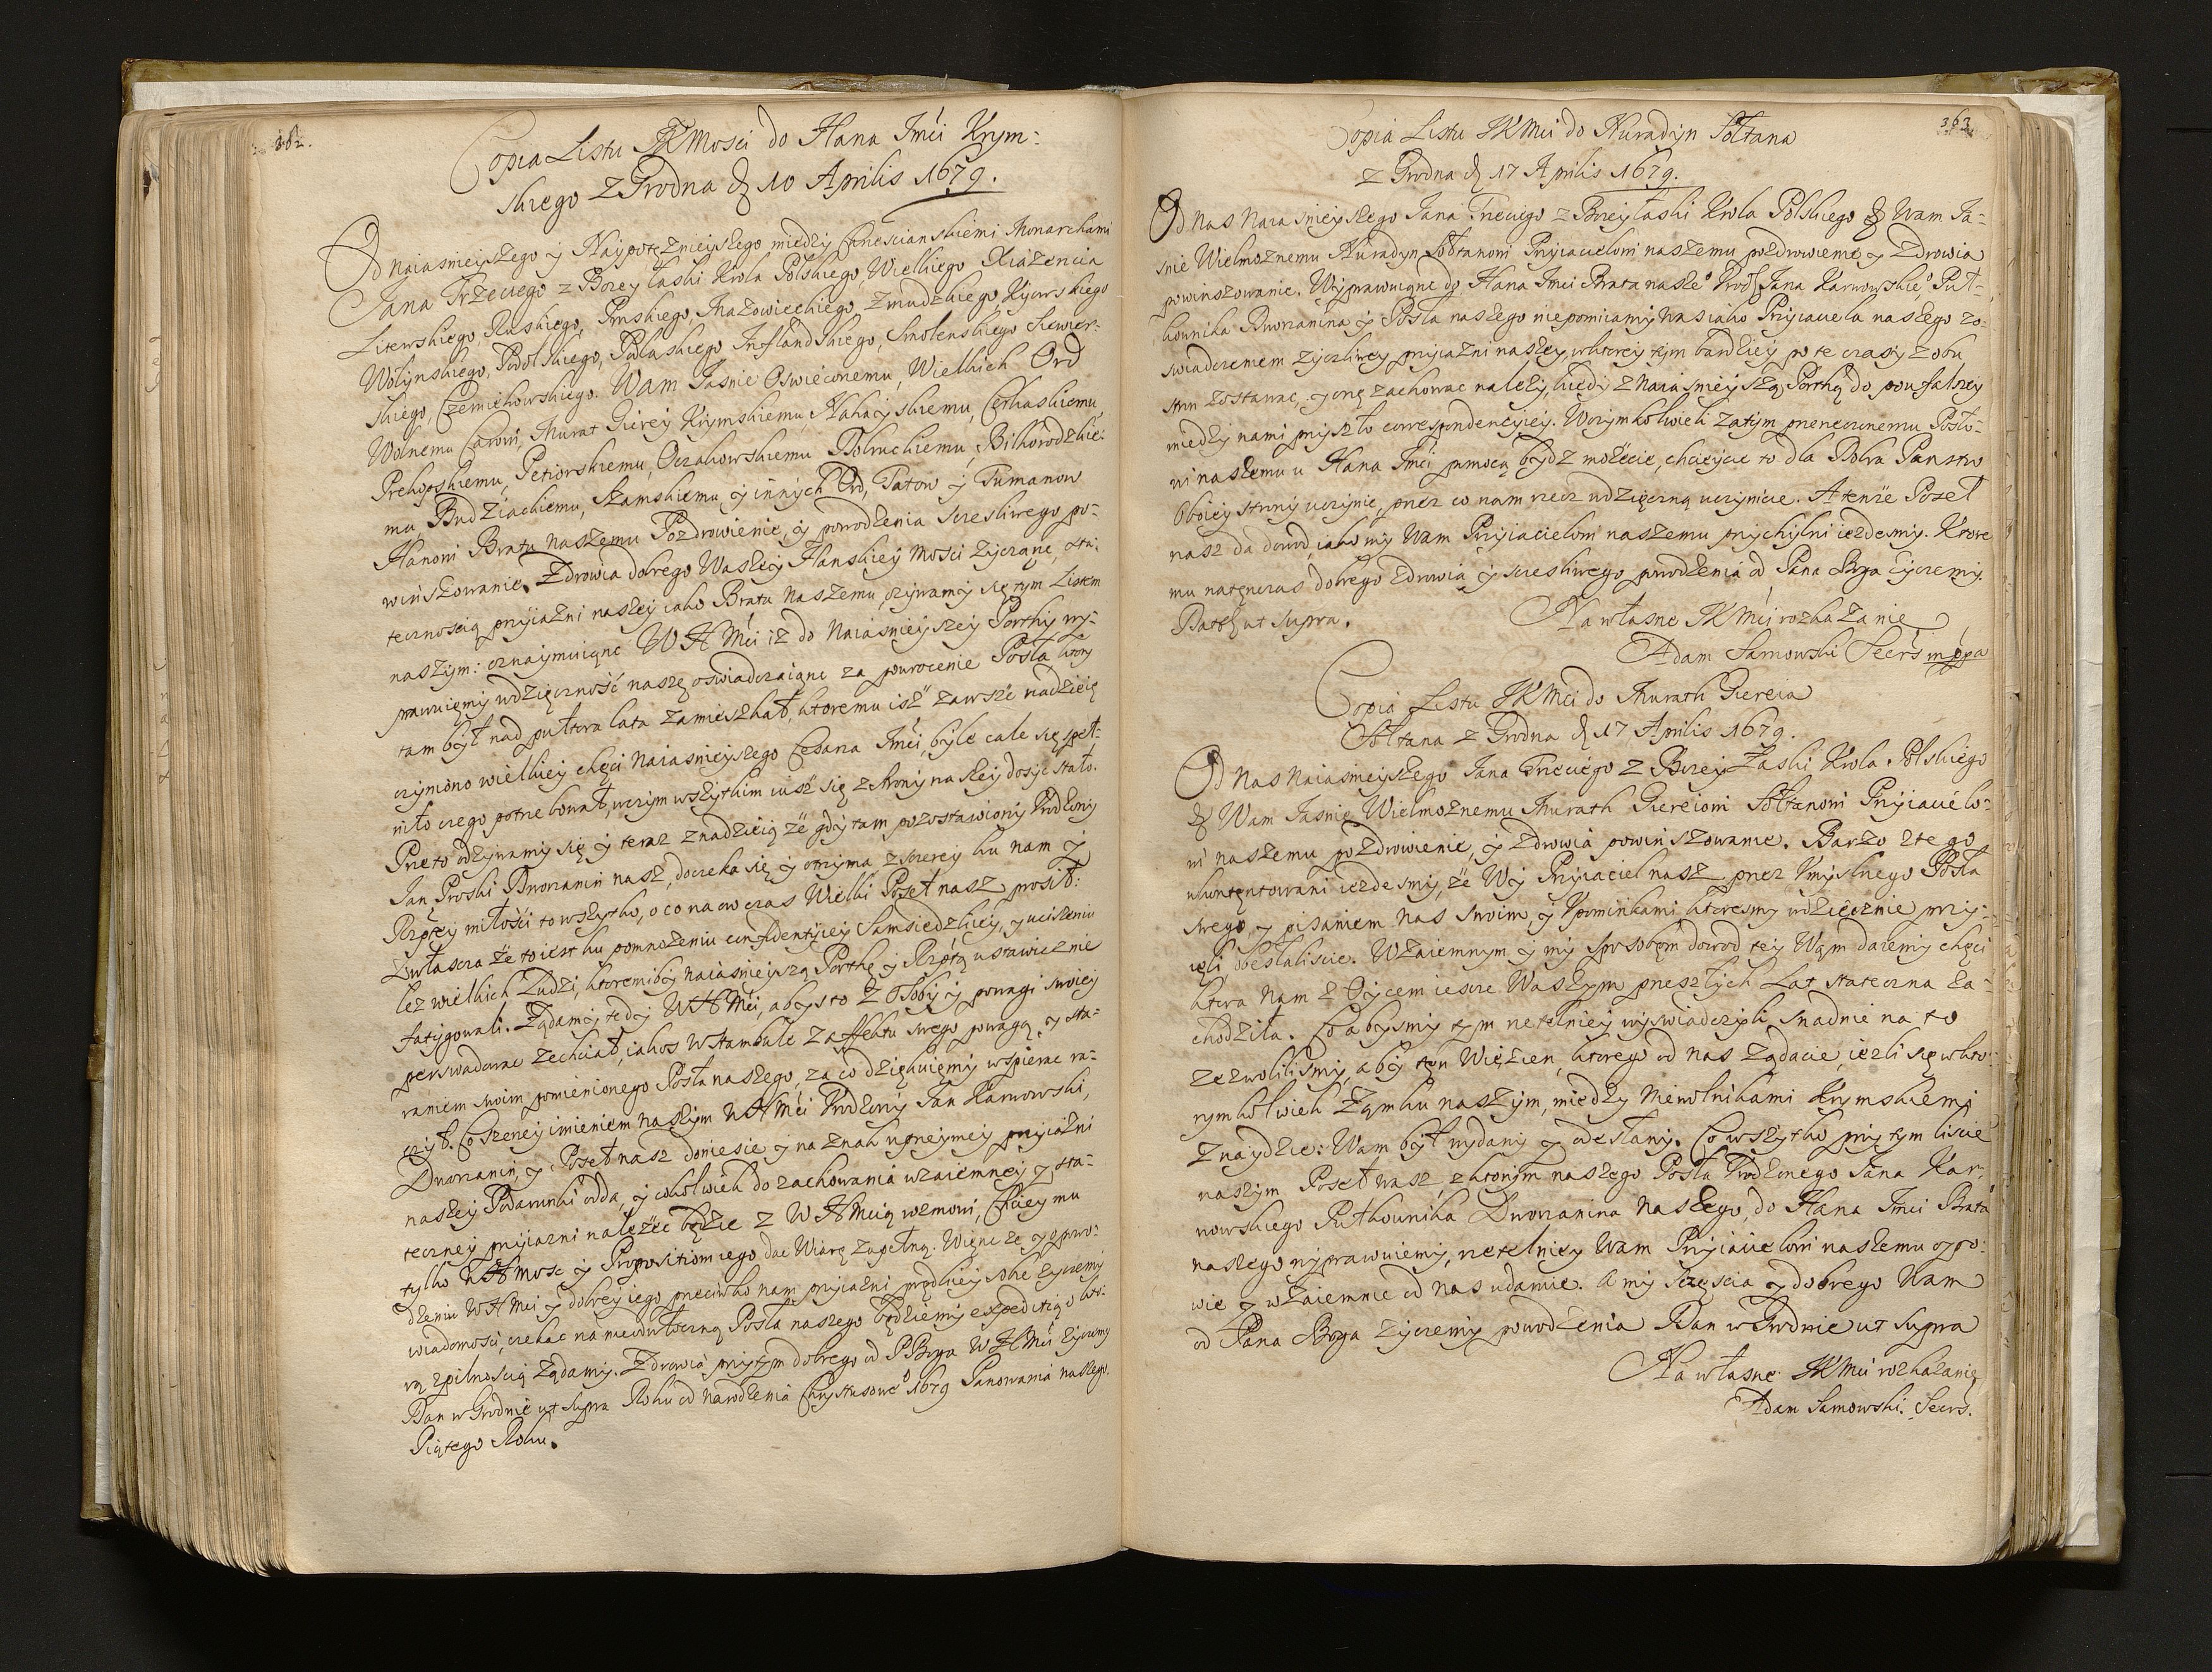 362.
Copia Listu JKMosci do Hana Jmći Krym:
skiego z Grodna d. 10 Aprilis 1679.
Od Naiasnieyszego y Naypotęznieyszego między Chrescianskiemi Monarchami
Jana Trzeciego z Bozey łaski Krola Polskiego, Wielkiego Xiązencia
Litewskiego, Ruskiego, Pruskiego, Mazowieckiego, Zmudzkiego, Kijowskiego
Wołynskiego, Podolskiego, Podlaskiego, Inflandskiego, Smolenskiego Siewier:
skiego, Czerniehowskiego. Wam Jasnie Oswieconemu, Wielkich Ord
Wolnemu Carowi, Murat Gierey Krymskiemu, Nahayskiemu, Cerkaskiemu,
Prekopskiemu, Petiorskiemu, Oczakowskiemu, Dobruckiemu, Bihorodzkie:
mu, Budziackiemu, Szamskiemu y innych Ord, Tatow y Tumanow
Hanowi Bratu naszemu Pozdrowienie, y powodzenia sczesliwego po-
winszowanie. Zdrowia dobrego Waszey Hanskiey Mosci zycząc, sta:
tecznoscią przyiazni naszey iako Bratu Naszemu, ozywamy się tym Listem
naszym: oznaymuiąc W H Mći iz do Naiasnieyszey Porthy wy-
prawuiemy wdzięczność naszę oswiadczaiąc za powrocenie Posła, ktory
tam był nad pułtora lata zamieszkał, ktoremu isz zawsze nadzieię
czyniono wielkiey chęci Naiasnieyszego Cesarza Jmći, byle cale się speł:
niło czego potrzebował, w czym wszytkim iusz się z strony naszey dosyc stało.
Przeto odzywamy się y teraz z nadzieią że gdy tam pozostawiony Urodzony
Jan Proski Dworzanin nasz, doczeka się y otrzyma z sczerey ku nam y
Rzptey miłosci to wszytko, o co na ow czas Wielki Poseł nasz prosił:
Zwłascza że to iest ku pomnozeniu confidentiey Samsiedzkiey, y uciszeniu
lez wielkich Ludzi, ktoremiby Naiasnieyszą Porthę y Rzptą ustawicznie
fatygowali. Ządamy tedy W H Mći, abysto z osoby y powagi swoiey
perswadowac zechciał, iakos w Stambule z affektu swego powagą y sta-
raniem swoim pomienionego Posła naszego, za co dziękuiemy wspierac ra-
czył. Co szerzey imieniem naszym W H Mći Urodzony Jan Karwowski,
Dworzanin y Poseł nasz doniesie y na znak uprzeymey przyiazni
naszey Podarunki odda, y cokolwiek do zachowania wzaiemney y sta-
teczney przyiazni nalezec będzie z W H Mcią rozmowi, Chciey mu
tylko W H Mosc y Propositiom iego dac Wiarę zupełną. Więc że y o powo:
dzeniu W H Mći y dobrey iego przeciwko nam przyiazni prędkiey sobie zyczemy
wiadomości, czekac na nieodwłoczną Posła naszego będziemy expeditią o kto:
rą z pilnoscią ządamy. Zdrowia przytym dobrego od P Boga W H Mći zyczemy
Dan w Grodnie ut supra Roku od Narodzenia Chrystusowe⁰ 1679 Panowania naszego
Piątego Roku.
363
Copia Listu JKMći do Nuradyn Sołtana
z Grodna d. 17 Aprilis 1679.
Od Nas Naiasnieyszego Jana Trzeciego z Bozey łaski Krola Polskiego &c. Wam Ja-
snie Wielmoznemu Nuradyn Sołtanowi Przyiacielowi naszemu pozdrowienie y Zdrowia
powinszowanie. Wyprawuiąc do Hana Jmći Brata nasze⁰ Urodz. Jana Karwowskie⁰, Puł-
kownika Dworzanina y Posła naszego niepomiiamy Was iako Przyiaciela naszego zo-
swiadczeniem zyczliwey przyiazni naszey, w ktorey tym bardziey po te czasy z obu
stron zostawac, y onę zachowac nalezy, kiedy z Naiasnieyszą Porthą do poufalszey
między nami przyszło correspondencyiey. W czymkolwiek zatym przerzeczonemu Posło-
wi naszemu u Hana Jmći pomocą bydz mozecie, chcieycie to dla Dobra Panstw
Oboiey strony uczynic, przez co nam rzecz wdzięczną uczynicie. A tenże Poseł
nasz da dowod, iako my Wam Przyiacielowi naszemu przychylni iezdesmy. Ktore
mu natęnczas dobrego zdrowia y sczesliwego powodzenia od Pana Boga zyczemy.
Datt. ut supra.
Na własne JKMći rozkazanie
Adam Sarnowski Secrs mppa
Copia Listu JKMći do Murath Giereia
Sołtana z Grodna d. 17 Aprilis 1679.
Od Nas Naiasnieyszego Jana Trzeciego z Bozey Łaski Krola Polskiego
&c. Wam Jasnie Wielmoznemu Murath Giereiowi Sołtanowi Przyiacielo-
wi naszemu pozdrowienie, y zdrowia powinszowanie. Barzo z tego
ukontentowani iezdesmy, że Wy Przyiaciel nasz przez Umyslnego Posła
swego, y pisaniem nas swoim, y Upominkami, ktoresmy wdzięcznie przy-
ięli, obesłaliscie. Wzaiemnym y my sposobem dowod tey Wam daiemy chęci
ktora Nam z Oycem iescze Waszym przeszłych Lat stateczna za-
chodziła. Co abysmy tym rzetelniey wyswiadczyli, snadnie na to
zezwolilismy, aby ten Więzien, ktorego od nas ządacie, iezli się w kto-
rymkolwiek Zamku naszym, między Niewolnikami Krymskiemi
znaydzie: Wam był wydany y odesłany. Co wszytko przy tym liscie
naszym Poseł wasz, z ktorym naszego Posła Urodzonego Jana Kar:
wowskiego Pułkownika Dworzanina Naszego, do Hana Jmći Brata
naszego wyprawuiemy, rzetelniey Wam Przyiacielowi naszemu opo:
wie y wzaiemnie od nas udamie. A my sczęscia y dobrego Wam
od Pana Boga zyczemy powodzenia Dan w Grodnie ut supra
Na własne JKMći rozkazanie
Adam Sarnowski. Secrs.